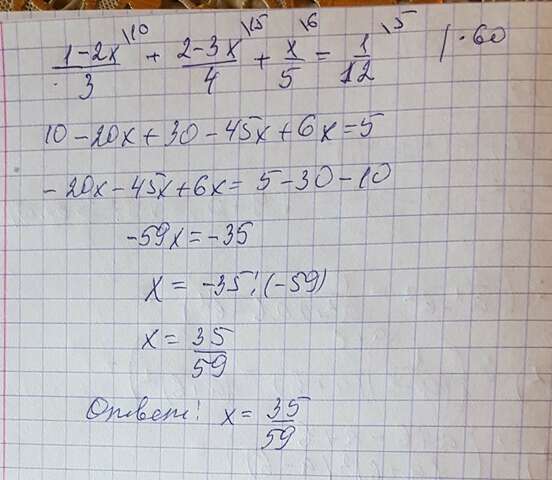 (1-2x)/3 \10 + (2-3x)/4 \15 + x/5 \6 = 1/12 \5 | · 60
10 - 20x + 30 - 45x + 6x = 5
- 20x - 45x + 6x = 5 - 30 - 10
-59x = -35
x = -35 : (-59)
x = 35/59
Ответ: x = 35/59